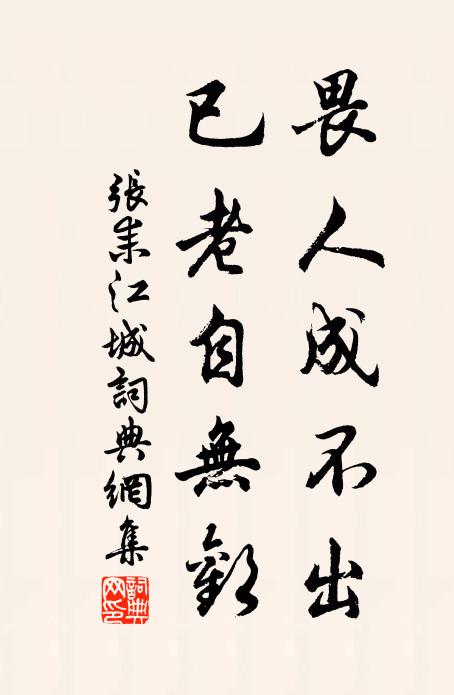 畏人成不出
已老自無歡
張耒江城詞典網集
詞典网印